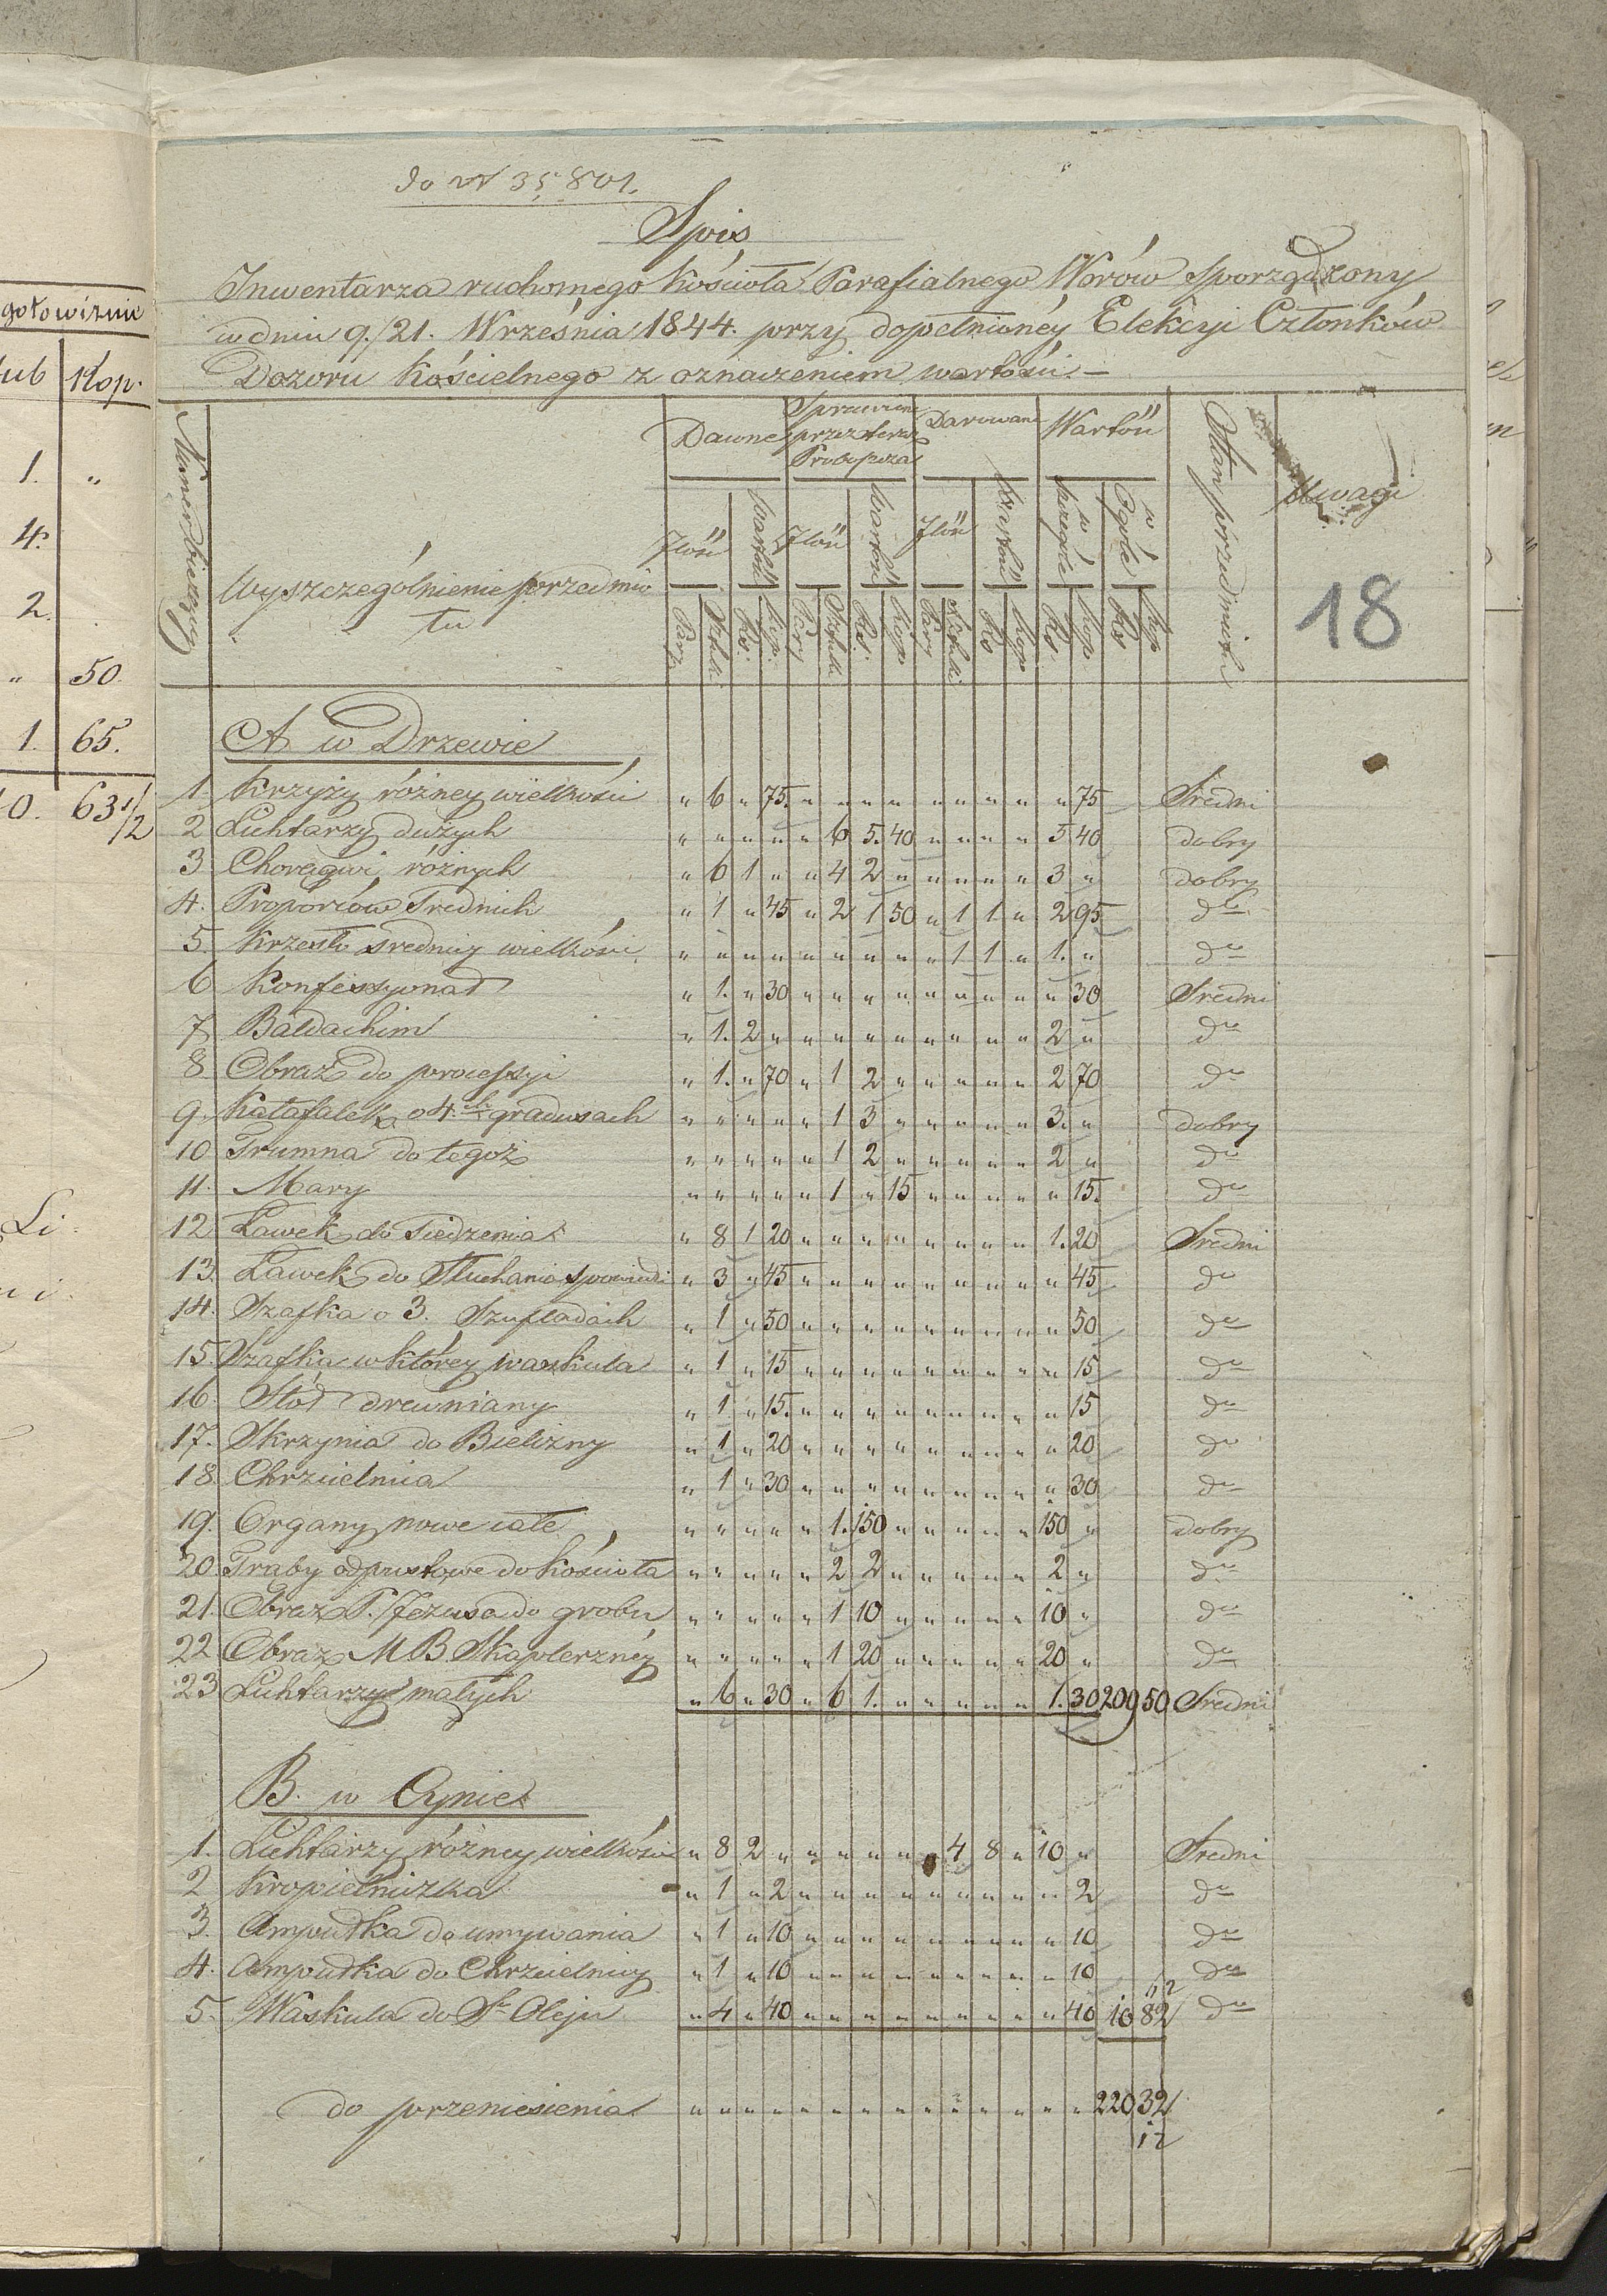 gotowiznie
Rub Kop.
1. "
4.
2.
" 50
1. 65.
0. 63 1/2
Li
do N 35,801.
Spis
Inwentarza ruchomego Kościoła Parafialnego Worów sporządzony
w dniu 9./21. Września 1844. przy dopełnionéy Elekcyi Członków
Dozoru Kościelnego z oznaczeniem wartości.—
Numer bieżący
Wyszczególnienie przedmiotu
Dawne
Sprawione przez teraz Proboszcza
Darowane
Wartość
Stan przedmiotu
Uwagi
Ilość Wartość Ilość Wartość Ilość Wartość w szczególe w Ogóle
Pary Sztuki Rs. kop. Pary Sztuki Rs. kop. Pary Sztuki Rs kop. Rs. kop. Rs kop
18
A w Drzewie
1. Krzyży różney wielkości " 6 " 75. " " " " " " " " " 75 Sredni
2 Lichtarzy dużych " " " " " 6 5. 40 " " " " 5 40 dobry
3 Chorągwi różnych " 6 1 " " 4 2 " " " " " 3 " dobry
4. Proporców Srednich " 1 " 45 " 2 1 50 " 1 1 " 2 95 do
5. Krzesło sredniey wielkości. " " " " " " " " " 1 1 " 1. " do
6 Konfessyonał " 1. " 30 " " " " " " " " " 30 Sredni
7 Baldachim " 1. 2 " " " " " " " " " 2 " do
8 Obraz do processyi " 1. " 70 " 1 2 " " " " " 2 70 do
9. Katafalek o 4ch gradusach " " " " " 1 3 " " " " " 3. " dobry
10 Trumna do tegoż " " " " " 1 2 " " " " " 2 " do
11. Mary " " " " " 1 " 15 " " " " " 15. do
12 Ławek do Siedzenia " 8 1 20 " " " " " " " " 1. 20 Sredni
13. Ławek do Słuchania spowiedzi " 3 " 45 " " " " " " " " " 45 do
14. Szafka o 3. Szufladach " 1 " 50 " " " " " " " " " 50 do
15. Szafka w którey waskula " 1 " 15 " " " " " " " " " 15 do
16. Stół drewniany " 1 " 15. " " " " " " " " " 15 do
17. Skrzynia do Bielizny " 1 " 20 " " " " " " " " " 20 do
18. Chrzcielnica " 1 " 30 " " " " " " " " " 30 do
19. Organy nowe całe " " " " " 1. 150 " " " " " 150 " dobry
20 Traby odpustowe do Kościoła " " " " " 2 2 " " " " " 2 " do
21. Obraz P. Jezusa do grobu " " " " " 1 10 " " " " " 10 " do
22 Obraz M B. Skaplerznéy " " " " " 1 20 " " " " " 20 " do
23 Lichtarzy małych " 6 " 30 " 6 1. " " " " " 1. 30 209 50 Sredni
B. w Cynie
1. Lichtarzy różney wielkości " 8 2 " " " " " " 4 8 " 10 " Sredni
2 Kropielniczka " 1 " 2 " " " " " " " " " 2 do
3. Ampułka do umywania " 1 " 10 " " " " " " " " " 10 do
4. Ampułka do Chrzcielnicy " 1 " 10 " " " " " " " " " 10 do
62
5. Waskula do St Oleju " 4 " 40 " " " " " " " " " 40 10 82 do
do przeniesienia " " " " " " " " " " " " " " 220 32
12